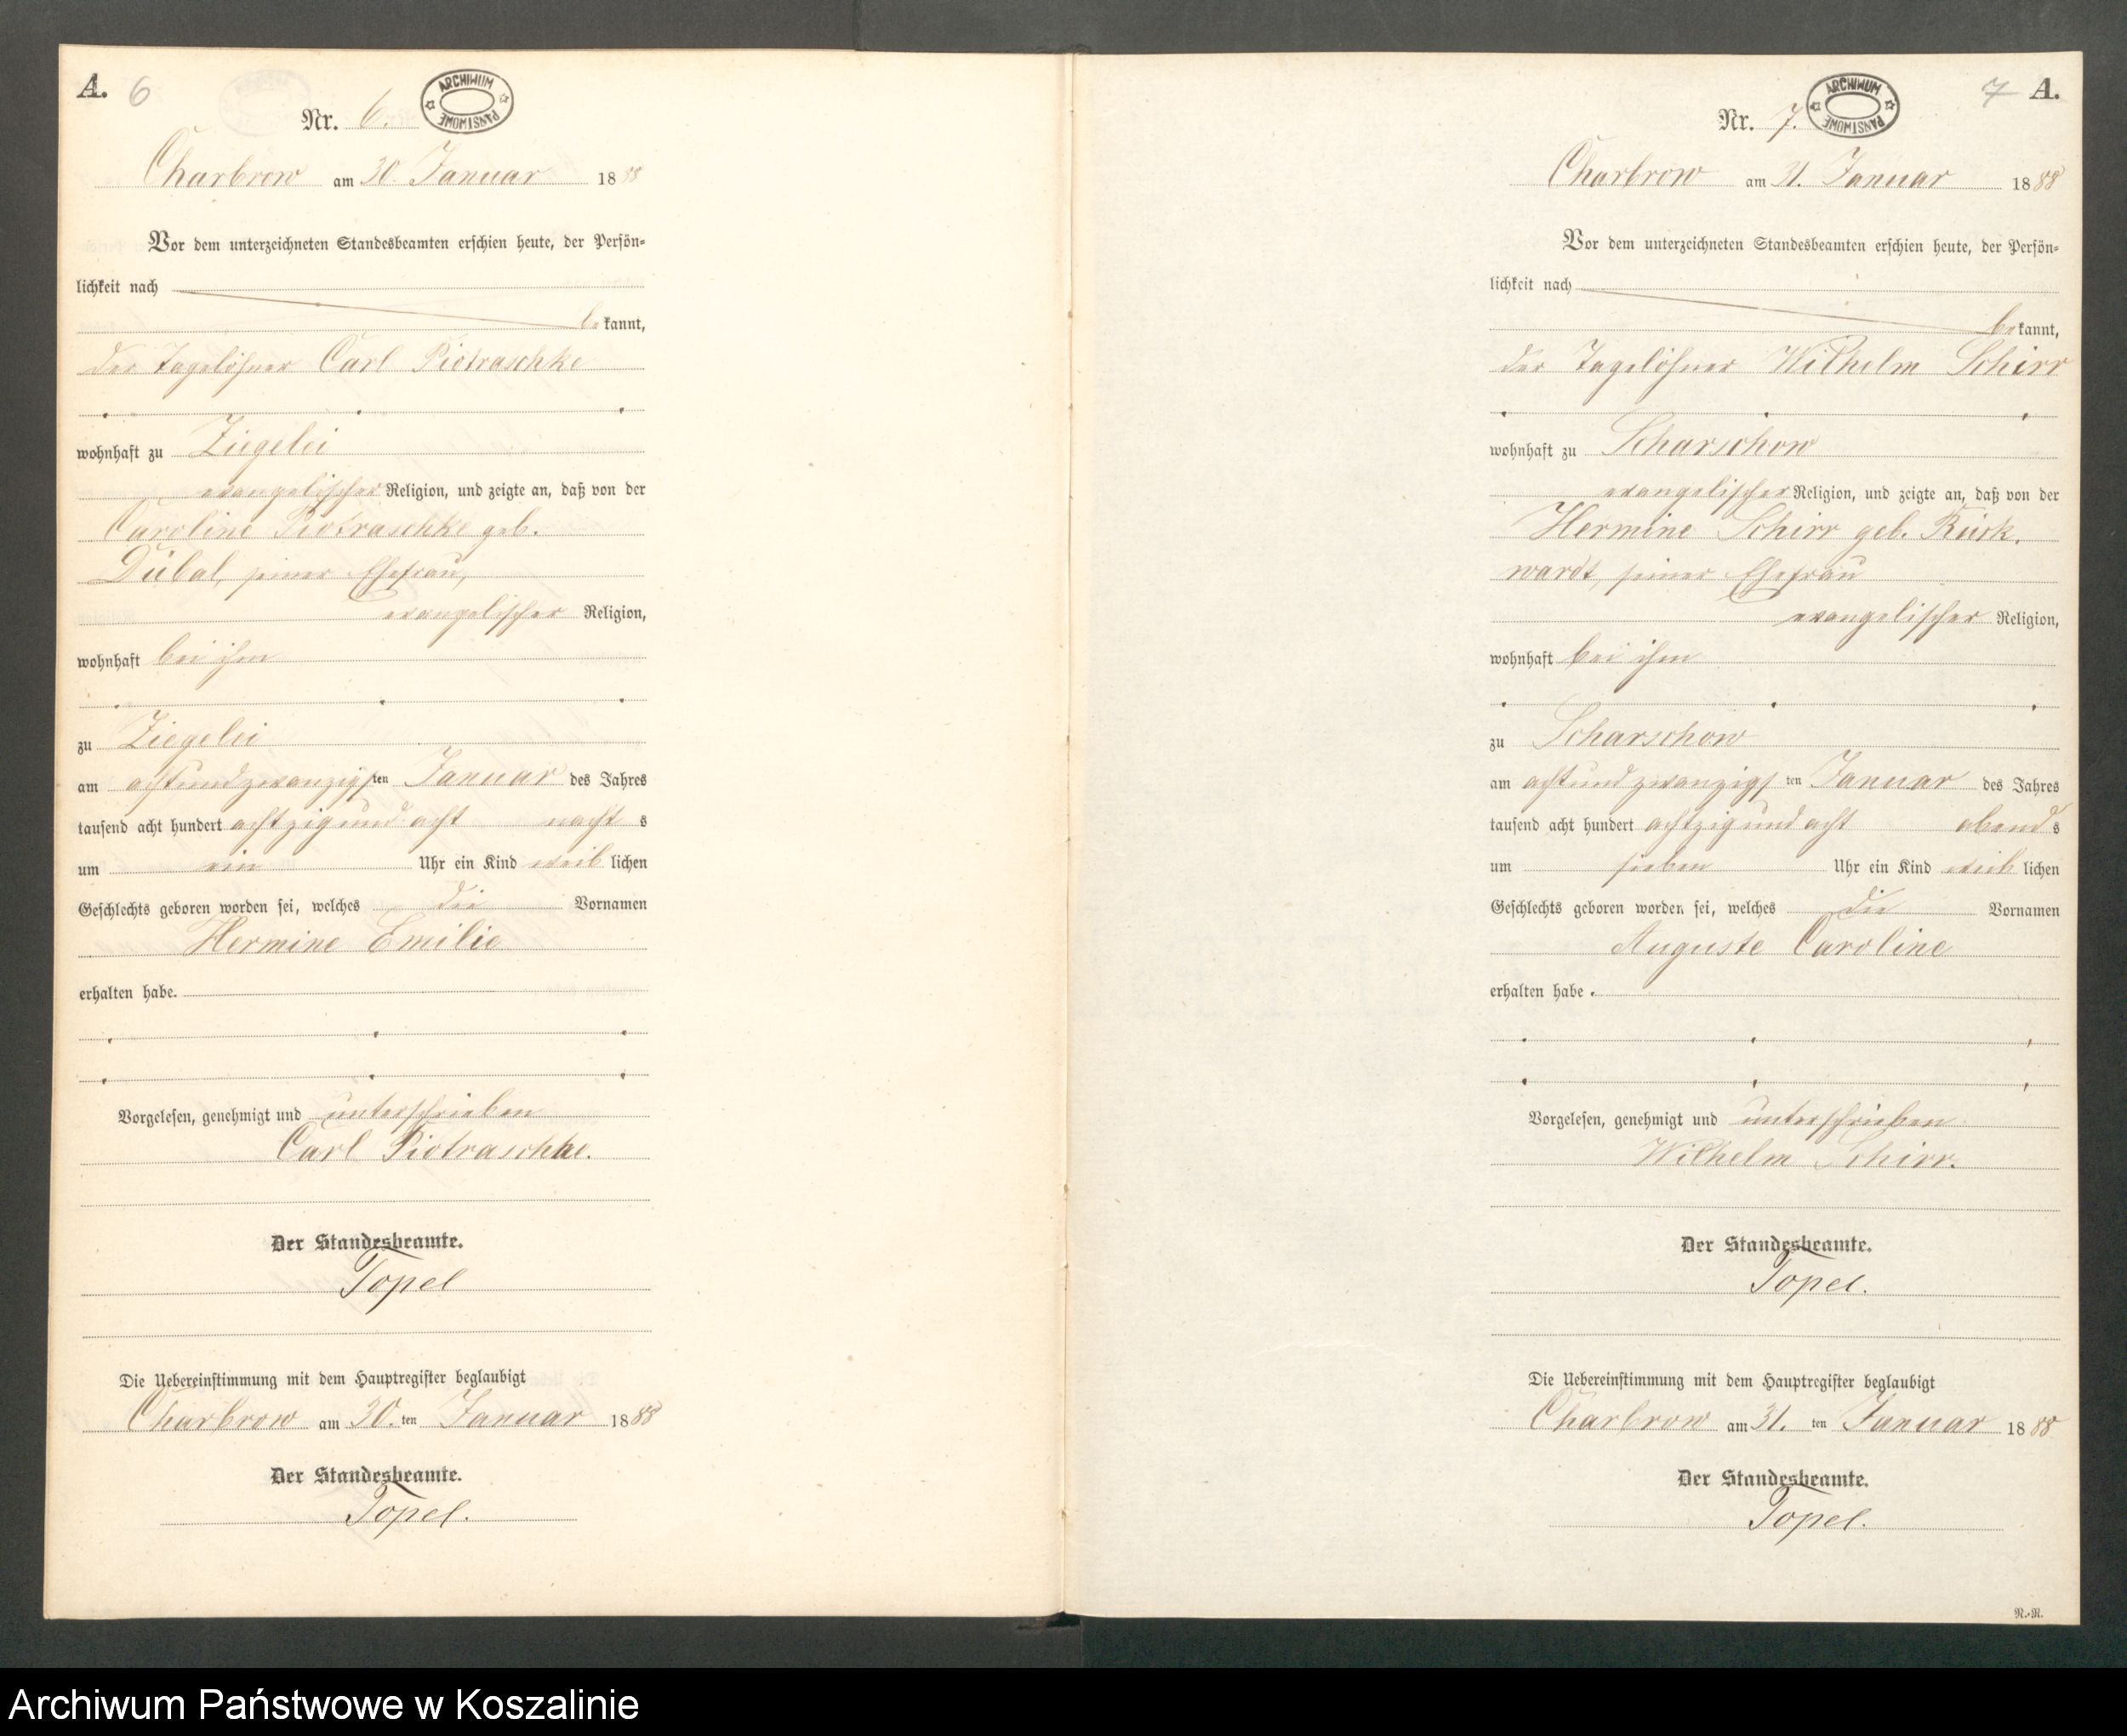 A. 6
ARCHIWUM PAŃSTWOWE
Nr. 6.
Charbrow am 30. Januar 1888
Vor dem unterzeichneten Standesbeamten erschien heute, der Persön-
lichkeit nach
bekannt,
der Tagelöhner Carl Piotraschke
wohnhaft zu Ziegelei
evangelischer Religion, und zeigte an, daß von der
Caroline Piotraschke geb.
Dübal, seiner Ehefrau,
evangelischer Religion,
wohnhaft bei ihm
zu Ziegelei
am achtundzwanzigsten Januar des Jahres
tausend acht hundert achtzig und acht nachts
um ein Uhr ein Kind weiblichen
Geschlechts geboren worden sei, welches die Vornamen
Hermine Emilie
erhalten habe.
Vorgelesen, genehmigt und unterschrieben
Carl Piotraschke.
Der Standesbeamte.
Topel
Die Uebereinstimmung mit dem Hauptregister beglaubigt
Charbrow am 30. ten Januar 1888
Der Standesbeamte.
Topel.
7 A.
ARCHIWUM PAŃSTWOWE
Nr. 7.
Charbrow am 31. Januar 1888
Vor dem unterzeichneten Standesbeamten erschien heute, der Persön-
lichkeit nach
bekannt,
der Tagelöhner Wilhelm Schirr
wohnhaft zu Scharschow
evangelischer Religion, und zeigte an, daß von der
Hermine Schirr geb. Kück-
wardt, seiner Ehefrau
evangelischer Religion,
wohnhaft bei ihm
zu Scharschow
am achtundzwanzigsten Januar des Jahres
tausend acht hundert achtzig und acht abends
um sieben Uhr ein Kind weiblichen
Geschlechts geboren worden sei, welches die Vornamen
Auguste Caroline
erhalten habe.
Vorgelesen, genehmigt und unterschrieben
Wilhelm Schirr.
Der Standesbeamte.
Topel.
Die Uebereinstimmung mit dem Hauptregister beglaubigt
Charbrow am 31. ten Januar 1888
Der Standesbeamte.
Topel.
N.-N.
Archiwum Państwowe w Koszalinie